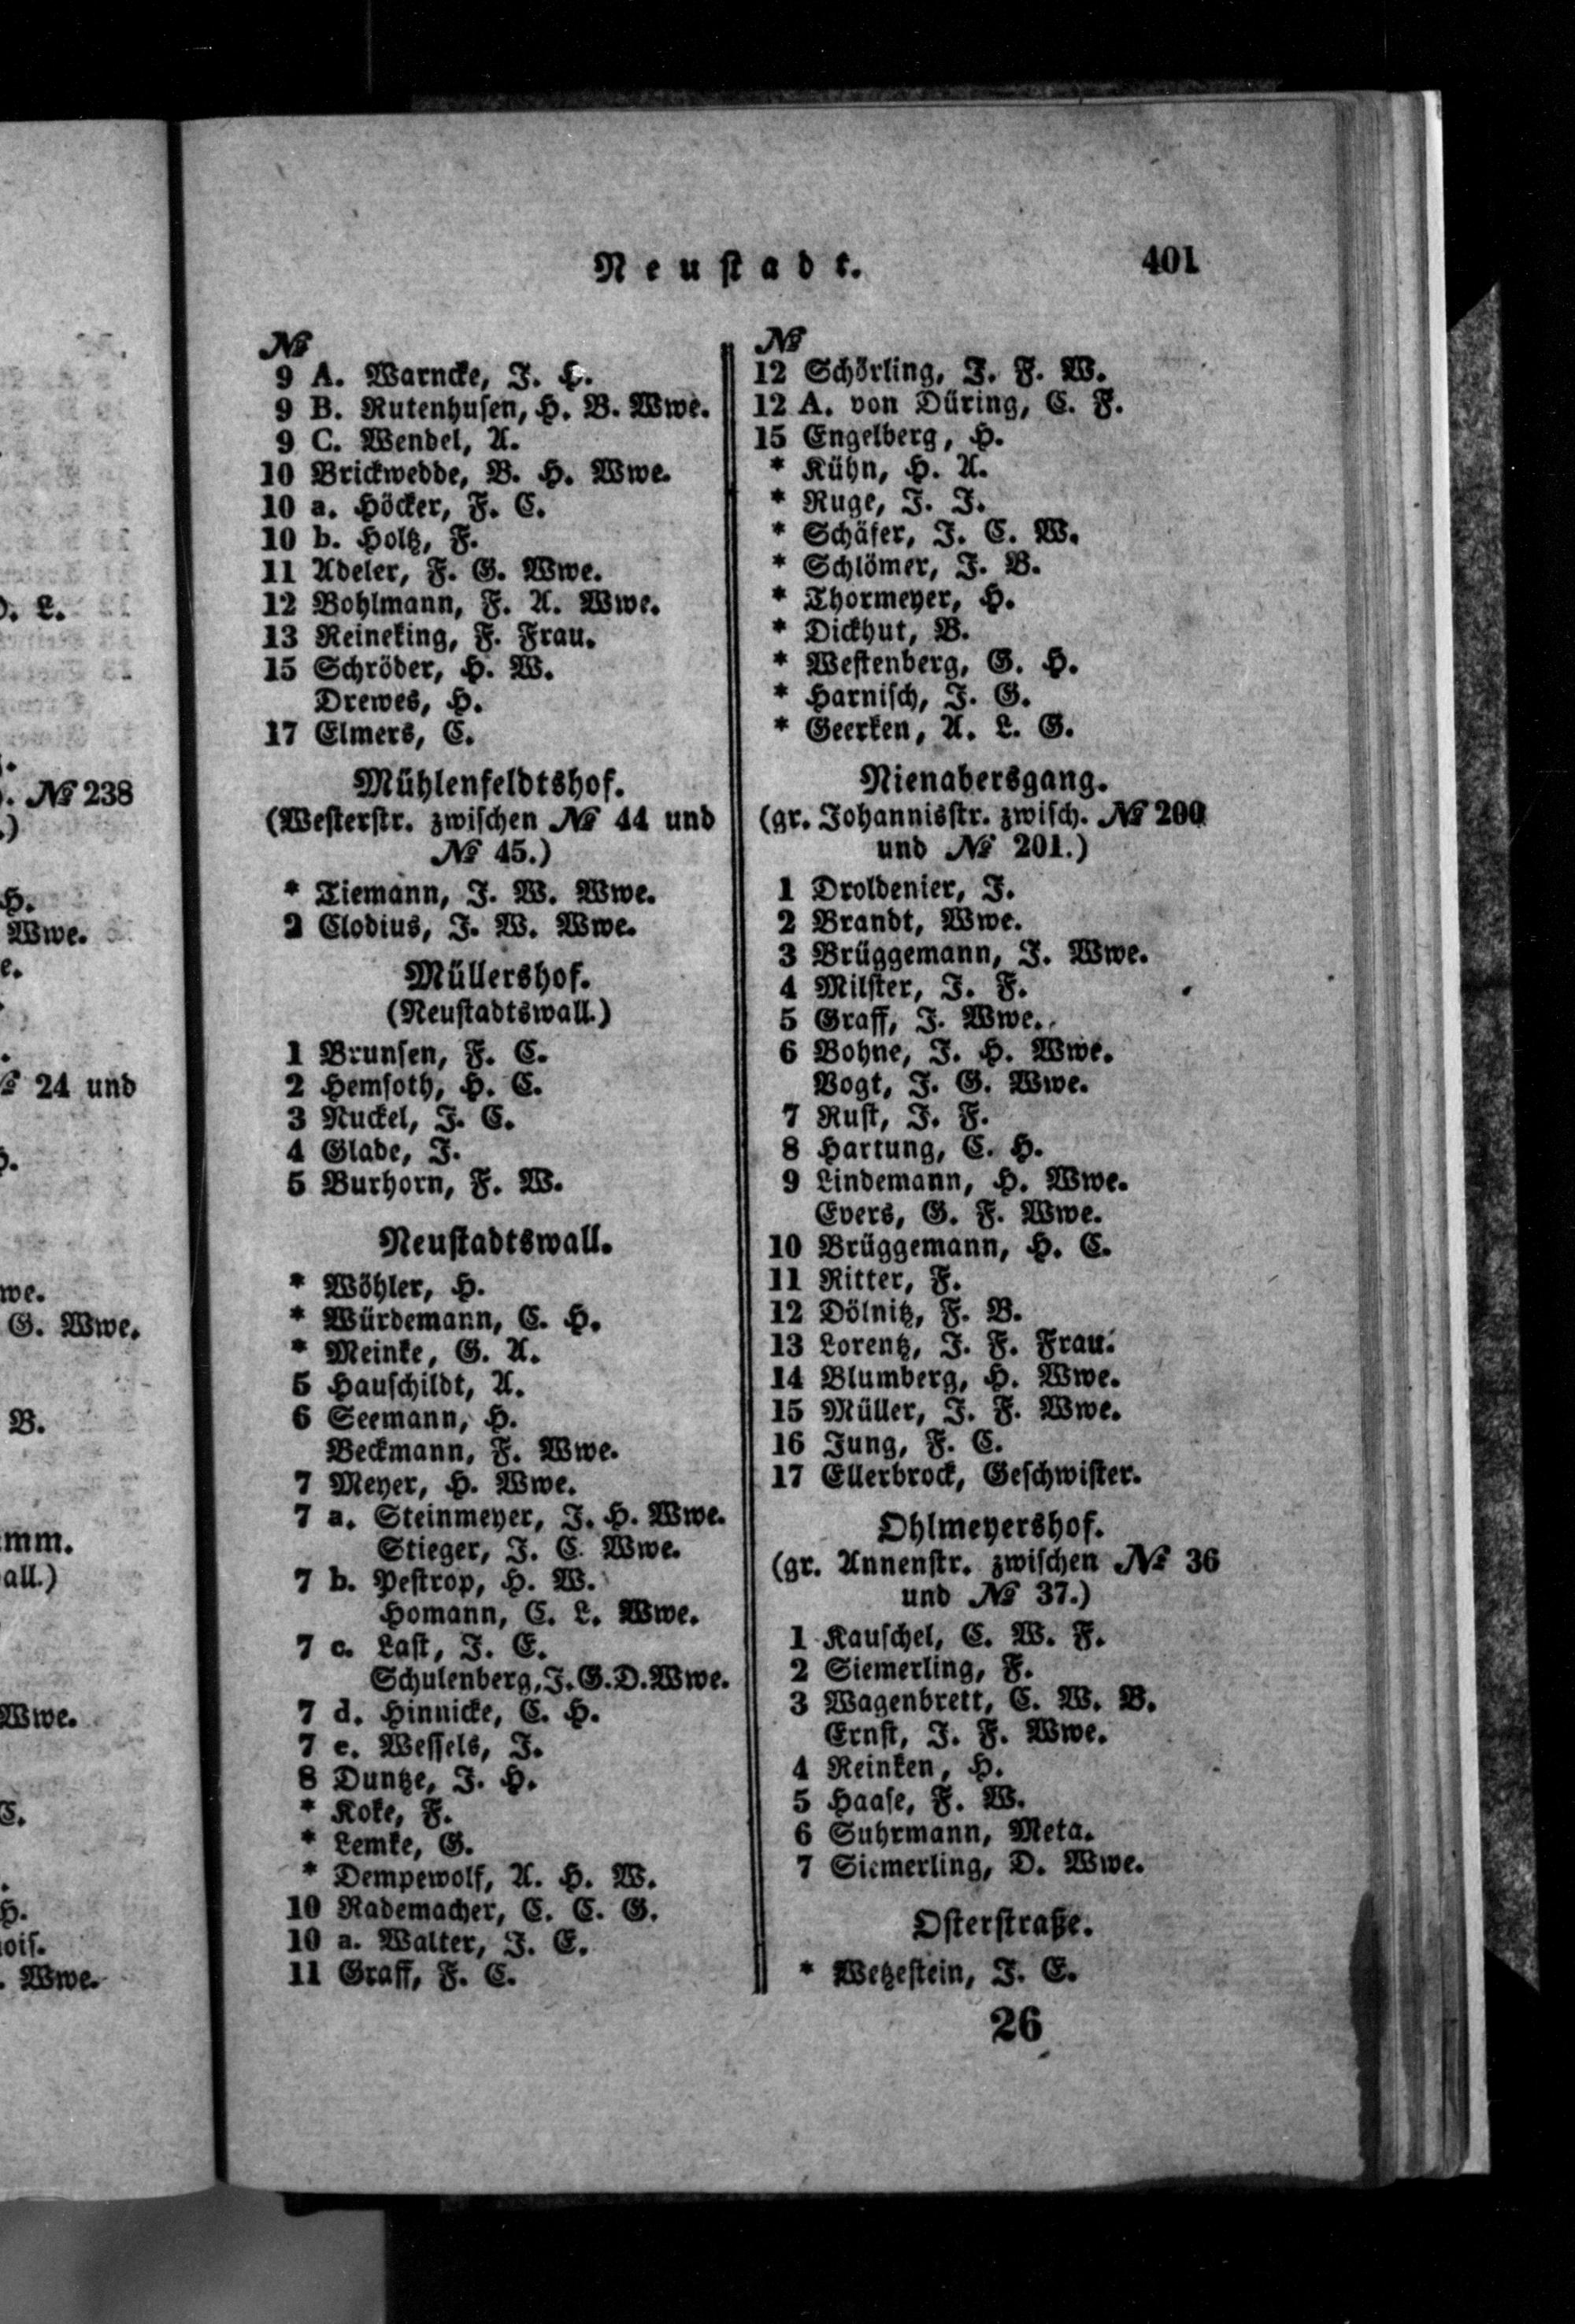 Neustadt. 401
№
9 A. Warncke, J. H.
9 B. Rutenhusen, H. B. Wwe.
9 C. Wendel, A.
10 Brickwedde, B. H. Wwe.
10 a. Höcker, F. C.
10 b. Holtz, F.
11 Adeler, F. G. Wwe.
12 Bohlmann, F. A. Wwe.
13 Reineking, F. Frau.
15 Schröder, H. W.
Drewes, H.
17 Elmers, C.
Mühlenfeldtshof.
(Westerstr. zwischen № 44 und
№ 45.)
* Tiemann, J. W. Wwe.
2 Clodius, J. W. Wwe.
Müllershof.
(Neustadtswall.)
1 Brunsen, F. C.
2 Hemsoth, H. C.
3 Nuckel, J. C.
4 Glade, J.
5 Burhorn, F. W.
Neustadtswall.
* Wöhler, H.
* Würdemann, C. H.
* Meinke, G. A.
5 Hauschildt, A.
6 Seemann, H.
Beckmann, F. Wwe.
7 Meyer, H. Wwe.
7 a. Steinmeyer, J. H. Wwe.
Stieger, J. C. Wwe.
7 b. Pestrop, H. W.
Homann, C. L. Wwe.
7 c. Last, J. E.
Schulenberg, J. G. D. Wwe.
7 d. Hinnicke, C. H.
7 e. Wessels, J.
8 Duntze, J. H.
* Koke, F.
* Lemke, G.
* Dempewolf, A. H. W.
10 Rademacher, C. C. G.
10 a. Walter, J. E.
11 Graff, F. C.
№
12 Schörling, J. F. W.
12 A. von Düring, C. F.
15 Engelberg, H.
* Kühn, H. A.
* Ruge, J. J.
* Schäfer, J. C. W.
* Schlömer, J. B.
* Thormeyer, H.
* Dickhut, B.
* Westenberg, G. H.
* Harnisch, J. G.
* Geerken, A. L. G.
Nienabersgang.
(gr. Johannisstr. zwisch. № 200
und № 201.)
1 Droldenier, J.
2 Brandt, Wwe.
3 Brüggemann, J. Wwe.
4 Milster, J. F.
5 Graff, J. Wwe.
6 Bohne, J. H. Wwe.
Vogt, J. G. Wwe.
7 Rust, J. F.
8 Hartung, C. H.
9 Lindemann, H. Wwe.
Evers, G. F. Wwe.
10 Brüggemann, H. C.
11 Ritter, F.
12 Dölnitz, F. B.
13 Lorentz, J. F. Frau.
14 Blumberg, H. Wwe.
15 Müller, J. F. Wwe.
16 Jung, F. C.
17 Ellerbrock, Geschwister.
Ohlmeyershof.
(gr. Annenstr. zwischen № 36
und № 37.)
1 Kauschel, C. W. F.
2 Siemerling, F.
3 Wagenbrett, C. W. B.
Ernst, J. F. Wwe.
4 Reinken, H.
5 Haase, F. W.
6 Suhrmann, Meta.
7 Siemerling, D. Wwe.
Osterstraße.
* Wetzestein, J. E.
26